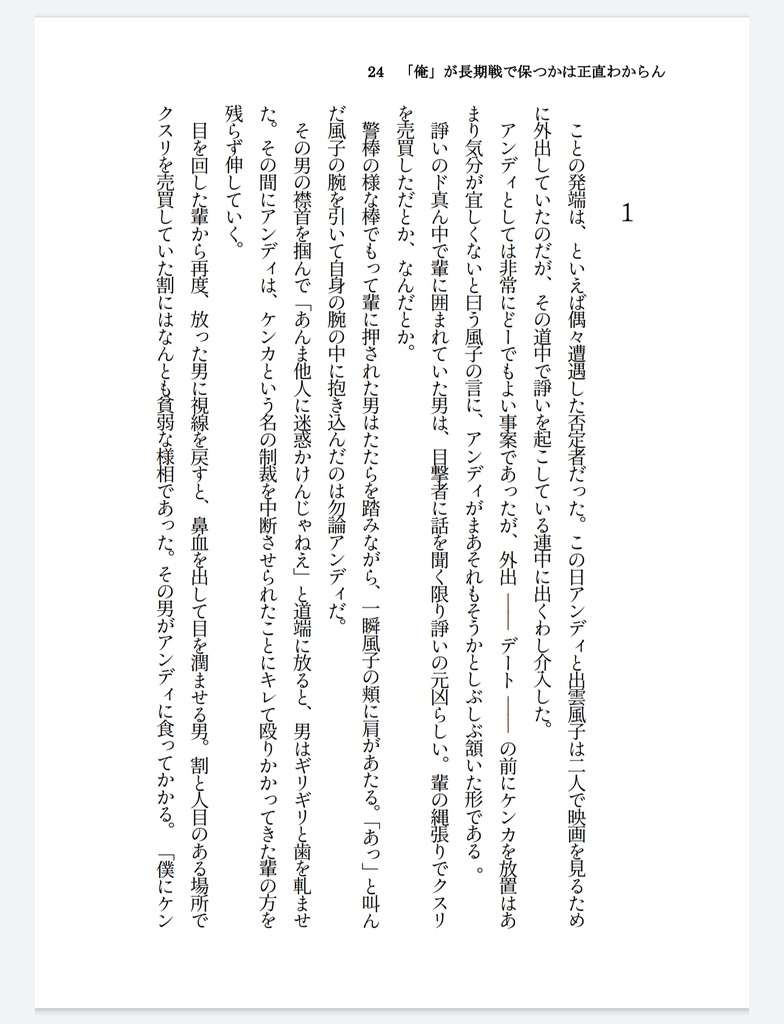 24　「俺」が長期戦で保つかは正直わからん
1
ことの発端は、といえば偶々遭遇した否定者だった。この日アンディと出雲風子は二人で映画を見るため
に外出していたのだが、その道中で諍いを起こしている連中に出くわし介入した。
アンディとしては非常にどーでもよい事案であったが、外出――デート――の前にケンカを放置はあ
まり気分が宜しくないと曰う風子の言に、アンディがまあそれもそうかとしぶしぶ頷いた形である 。
諍いのド真ん中で輩に囲まれていた男は、目撃者に話を聞く限り諍いの元凶らしい。輩の縄張りでクスリ
を売買しただとか、なんだとか。
警棒の様な棒でもって輩に押された男はたたらを踏みながら、一瞬風子の頬に肩があたる。「あっ」と叫ん
だ風子の腕を引いて自身の腕の中に抱き込んだのは勿論アンディだ。
その男の襟首を掴んで「あんま他人に迷惑かけんじゃねえ」と道端に放ると、男はギリギリと歯を軋ませ
た。その間にアンディは、ケンカという名の制裁を中断させられたことにキレて殴りかかってきた輩の方を
残らず伸していく。
目を回した輩から再度、放った男に視線を戻すと、鼻血を出して目を潤ませる男。割と人目のある場所で
クスリを売買していた割にはなんとも貧弱な様相であった。その男がアンディに食ってかかる。　「僕にケン